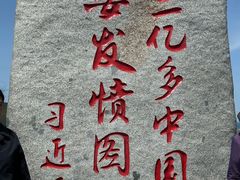 三亿多中国
要发愤图
习近